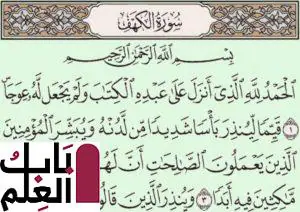 سورة الكهف
بسم الله الرحمن الرحيم
الْحَمْدُ لِلَّهِ الَّذِي أَنزَلَ عَلَىٰ عَبْدِهِ الْكِتَٰبَ وَلَمْ يَجْعَل لَّهُ عِوَجَاۜ
١ قَيِّمًا لِّيُنذِرَ بَأْسًا شَدِيدًا مِّن لَّدُنْهُ وَيُبَشِّرَ الْمُؤْمِنِينَ
الَّذِينَ يَعْمَلُونَ الصَّٰلِحَٰتِ أَنَّ لَهُ
مَّٰكِثِينَ فِيهِ أَبَدًا ٣ وَيُنذِرَ الَّذِينَ قَالُو
باب العلم